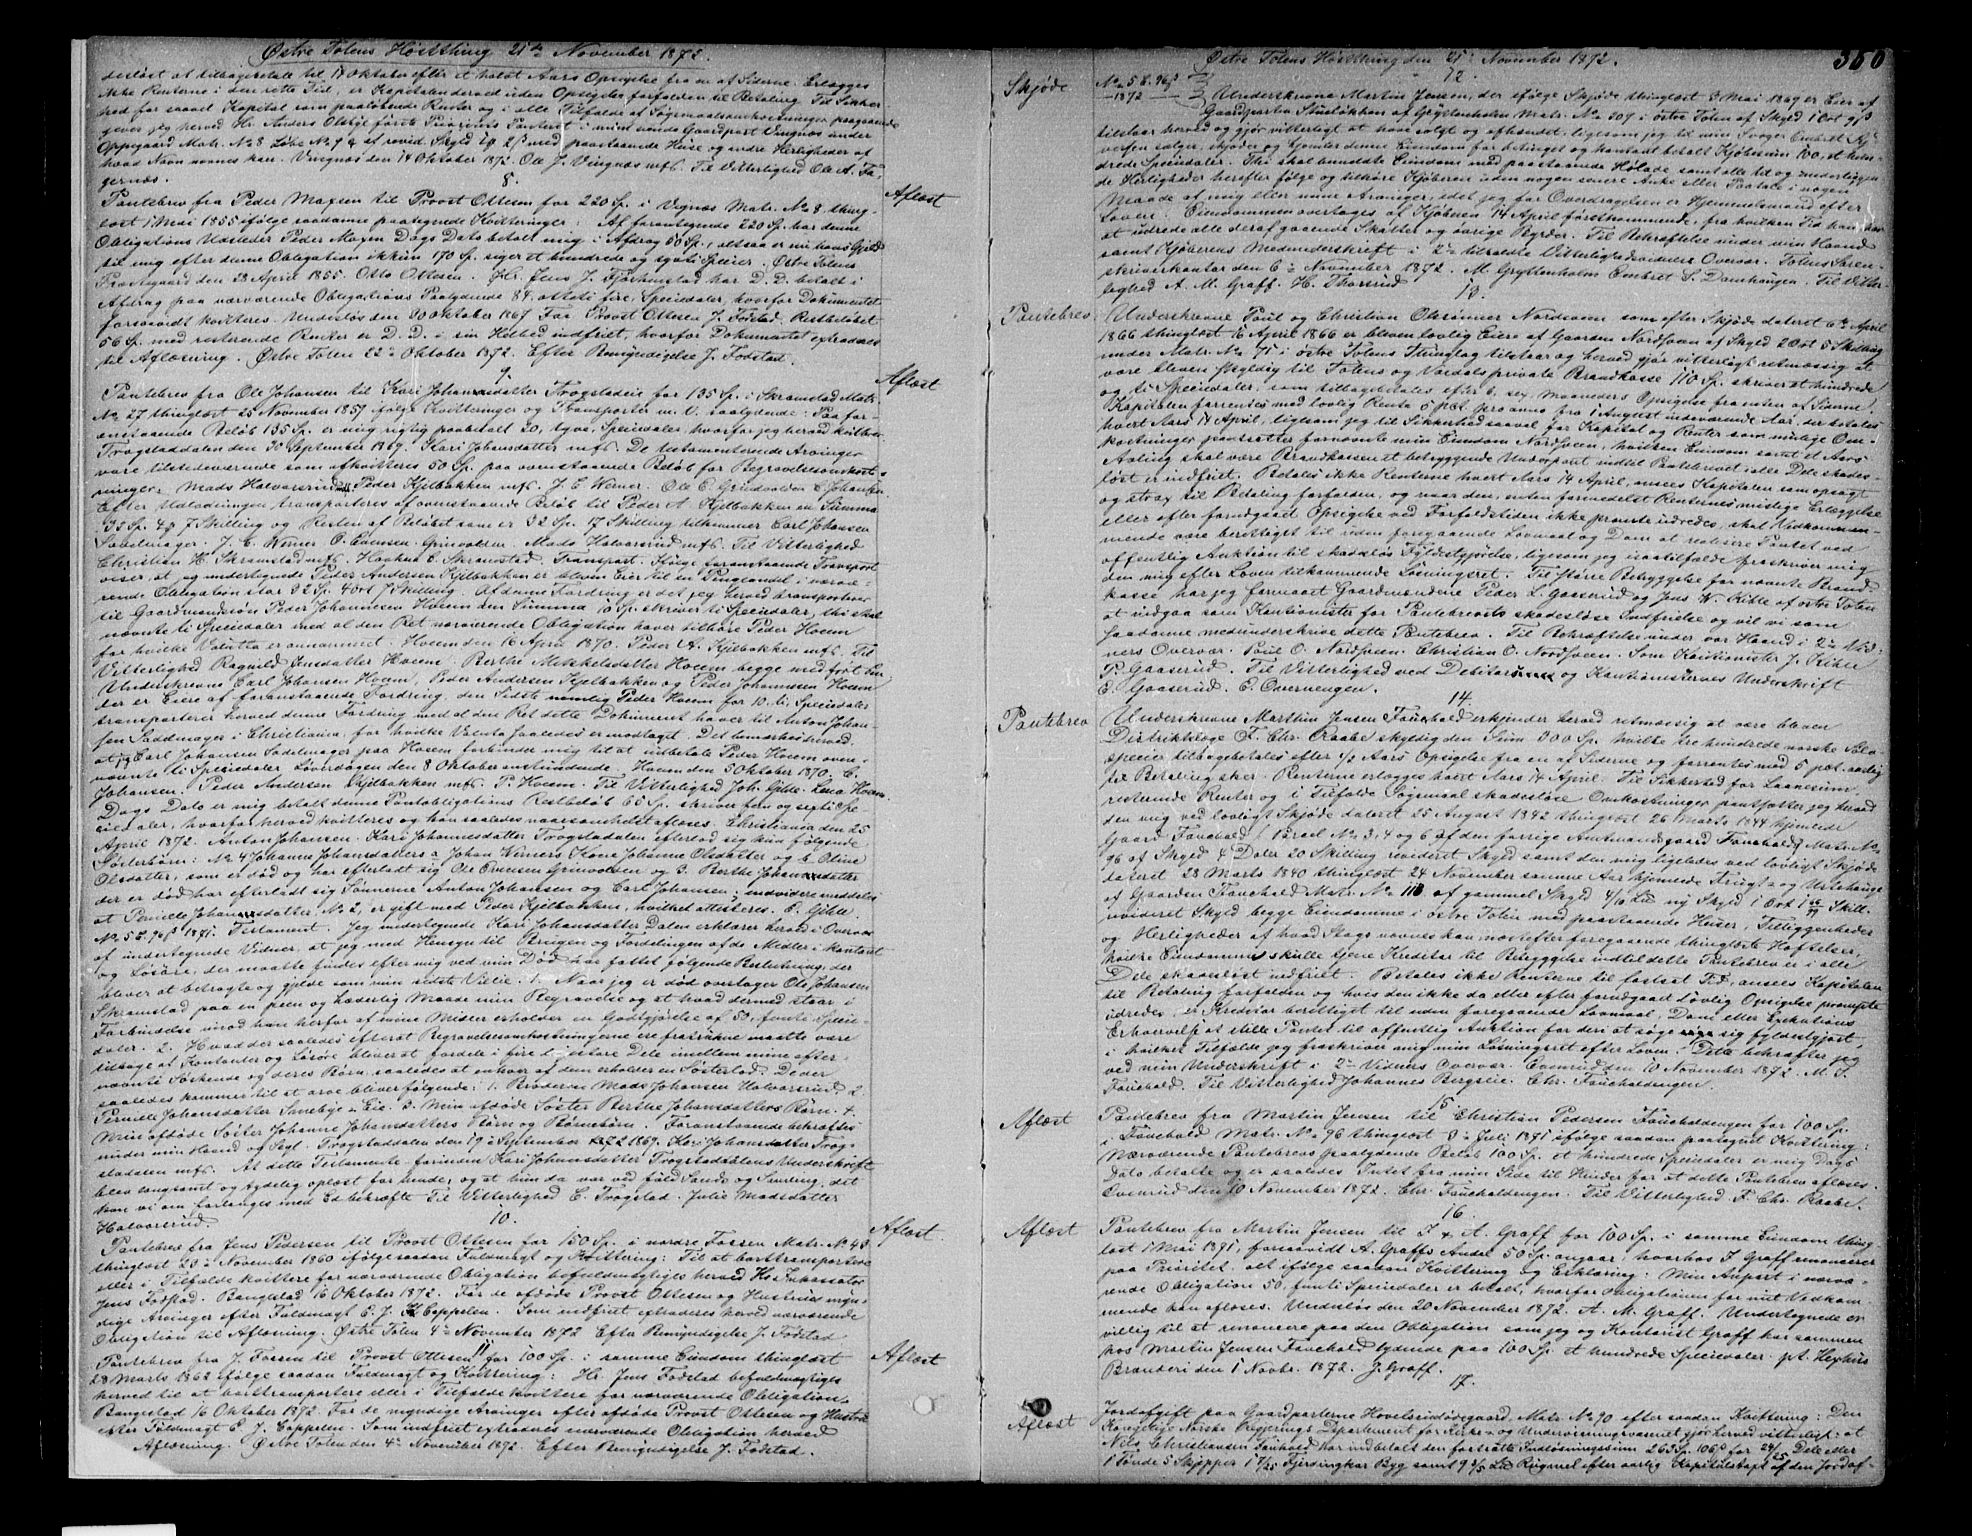 Østre Totens Høstthing 21de November 1872.
desløst at tilbagebetale til 14 Oktober efter et halvt Aars Opsigelse fra en af Siderne. Erlægges
ikke Renterne i den rette Tid, er Kapitalen derved uden Opsigelse forfalden til Betaling. Til Sikker
hed for saavel Kapital som paaløbende Renter og i alle Tilfælde af Søgsmaalsomkostninger
giver jeg herved Hr. Anders Olstje første Prioritets Panteret i min eiende Gaardpart Vingnæs under
Oppegaard Matr. No 8 Løbe No 9 a af revid. Skyld 2 β med paastaaende Huse og andre Herligheder af
hvad Navn nævnes kan. Vingnæs den 14 Oktober 1872. Ole J. Vingnæs m.f.S. Til Vitterlighed Ole A. Fa,
gernæs.
8.
Pantebrev fra Peder Maxen til Provst Ottesen for 220 Sp. i Vignæs Matr. No 8 thing-
Aflæst
læst 1 Mai 1855 ifølge saadanne paategnede Kvitteringer: Af foranstaaende 220 Sp. har denne
Obligations Udsteder Peder Maxen Dags Dato betalt mig i Afdrag 50 Sp., altsaa er nu hans Gjæld
til mig efter denne Obligation ikkun 170 Sp. siger et hundrede og sytti Specier. Østre Totens
Præstegaard den 28 April 1855. Otto Ottesen. Hr. Jens J. Fjørkenstad har D. D. betalt i
Afdrag paa nærværende Obligations Paalydende 84, otteti fire, Speciedaler, hvorfor Dokumentet
forsaavidt kvitteres. Undesløs den 30 Oktober 1867 For Provst Ottesen J. Fodstad. Restbeløbet
56 Sp. med resterende Renter er D. D. i sin Helhed indfriet, hvorfor Dokumentet extraderes
til Aflæsning. Østre Toten 22de Oktober 1872. Efter Bemyndigelse J. Fodstad.
9.
Pantebrev fra Ole Johansen til Kari Johannesdatter Trogstadeie for 135 Sp. i Skramstad Matr.
Aflæst
No 27 thinglæst 25 November 1857 ifølge Kvitteringer og Transporter m. V. saalydende: Paa for-
anstaaende Beløb 135 Sp. er mig rigtig paabetalt 20, tyve, Speciedaler, hvorfor jeg herved kvitterer
Trogstaddalen den 30 September 1869. Kari Johansdatter m.f.S. De testamenterende Arvinger
vare tilstedeværende som afkvitteres 50 Sp. paa ovenstaaende Beløb for Begravelsesomkost-
ninger. Mads Halvorsrud m.f.S. Peder Kjelbakken m.f.S. J. E. Werner. Ole E. Grindvolden C. Johansen
Efter Udlodningen transporteres af ovenstaaende Beløb til Peder A. Kjelbakken en Summa
32 Sp. 4 Ort 7 Skilling og Resten af Beløbet som er 32 Sp. 17 Skilling tilkommer Carl Johansen
Sadelmager. J. E. Werner O. Evensen Grinvolden. Mads Halvorsrud m.f.S. Til Vitterlighed
Christian H. Skramstad m.f.S. Haaken E. Skramstad. Transport. Ifølge foranstaaende Transport
viser, at jeg undertegnede Peder Andersen Kjelbakken er bleven Eier til en Pengeandel i nærvæ-
rende Obligation stor 32 Sp. 4 Ort 7 Skilling. Af denne Fordring er det jeg herved transporterer
til Gaardmandssøn Peder Johannesen Hoem den Summa 10 Sp. skriver ti Speciedaler, thi skal
nævnte ti Speciedaler med al den Ret nærværende Obligation haver tilhøre Peder Hoem
for hvilke Valutta er annammet. Hoem den 16 April 1870. Peder A. Kjelbakken m.f.S. Til
Vitterlighed Ragnild Jensdatter Hoem. Berthe Mikkelsdatter Hoem begge med ført Pen
Underskrevne Carl Johansen Hoem, Peder Andersen Kjelbakken og Peder Johannesen Hoem
der er Eiere af foranstaaende Fordring, den Sidste nemlig Peder Hoem for 10, ti, Speciedaler
transporterer herved denne Fordring med al den Ret dette Dokument haver til Anton Johan-
sen Sadelmager i Christiania for hvilke Valuta saaledes er modtaget. Det bemærkes herved
at jeg Carl Johansen Sadelmager paa Hoem forbinder mig til at indbetale Peder Hoem oven-
nævnte ti Speciedaler Løverdagen den 8 Oktober anstundende. Hoem den 3 Oktober 1870. C.
Johansen. Peder Andersen Kjelbakken m.f.S. P. Hoem. Til Vitterlighed Joh. Gihle. Lars Hoem.
Dags Dato er mig betalt denne Pantobligations Restbeløb 65 Sp. skriver fem og sexti Spe-
ciedaler, hvorfor herved kvitteres og kan saaledes naarsomhelst aflæses. Christiania den 25
April 1872. Anton Johansen. Kari Johannesdatter Trogstadalen efterlod sig kun følgende
Søsterbørn: No 4 Johanne Johansdatters a Johan Werners Kone Johanne Olsdatter og b. Oline
Olsdatter, som er død og har efterladt sig Ole Evensen Grinvolden og 3. Berthe Johannesdatter
der er død har efterladt sig Sønnerne Anton Johansen og Carl Johansen; endvidere meddeles
at Pernille Johannesdatter No 2, er gift med Peder Kjelbakken, hvilket attesteres. E. Gihle.
No 5 β 96 β 1871. Testament. Jeg undertegnede Kari Johansdatter Dalen erklærer herved i Overvær
af undertegnede Vidner, at jeg med Hensyn til Brugen og Fordelingen af de Midler i kontant
og Løsøre, der maatte findes efter mig ved min Død har fattet følgende Beslutning, der
bliver at betragte og gjelde som min sidste Villie. 1. Naar jeg er død overtager Ole Johansen
Skramstad paa en pæn og hæderlig Maade min Begravelse og at hvad dermed staar i
Forbindelse imod han herfor af mine Midler erholder en Godtgjørelse af 50, femti Specie-
daler. 2. Hvad der saaledes efterat Begravelsesomkostningerne ere fratrukne maatte være
tilbage af Kontanter og Løsøre bliver at fordele i fire ligestore Dele imellem mine efter-
nævnte Søskende og deres Børn, saaledes at enhver af dem erholder en Søsterlod. De der
saaledes kommer til at arve bliver følgende: 1. Broderen Mads Johansen Halvorsrud. 2.
Pernille Johansdatter Sønebye Eie. 3. Min afdøde Søster Berthe Johansdatters Børn. 4.
Min afdøde Søster Johanne Johansdatters Børn og Børnebørn. Foranstaaende bekræftes
under min Haand og Segl. Trogstaddalen den 19 September 1869. Kari Johansdatter Trog-
stadalen m.f.S. At dette Testamente forinden Kari Johansdatter Trogstaddalens Underskrift
blev langsomt og tydelig oplæst for hende, og at hun da var ved fuld Sands og Samling, det
kan vi om forlanges med Ed bekræfte Til Vitterlighed E. Trogstad. Julie Madsdatter
Halvorsrud.
10.
Pantebrev fra Jens Pedersen til Provst Ottesen for 150 Sp. i nordre Fossen Matr. No 43
Aflæst
thinglæst 20de November 1860 ifølge saadan Fuldmagt og Kvittering: Til at borttransportere
eller i Tilfælde kvittere for nærværende Obligation befuldmægtiges herved Hr. Inkassator
Jens Fodstad. Bangstad 16 Oktober 1872. For de afdøde Provst Ottesen og Hustrues myn-
dige Arvinger efter Fuldmagt E. J. Cappelen. Som indfriet extraderes herved nærværende
Obligation til Aflæsning. Østre Toten 4de November 1872 Efter Bemyndigelse J. Fodstad
11
Pantebrev fra J. Fossen til Provst Ottesen for 100 Sp. i samme Eiendom thinglæst
Aflæst
28 Marts 1862 ifølge saadan Fuldmagt og Kvittering: Hr. Jens Fodstad befuldmægtiges
herved til at borttransportere eller i Tilfælde kvittere for nærværende Obligation.
Bangstad 16 Oktober 1872. For de myndige Arvinger efter afdøde Provst Ottesen og Hustru
efter Fuldmagt E J. Cappelen. Som indfriet extraderes nærværende Obligation herved
Aflæsning. Østre Toten den 4de November 1872. Efter Bemyndigelse J. Fodstad.
Østre Totens Høstthing den 21de November 1872.
360
12.
Skjøde
No 5 β 96 β
1872
Underskrevne Martin Jensen, der ifølge Skjøde thinglæst 3 Mai 1869 er Eier af
Gaardparten Stusløkken af Grytenholm Matr. No 207 i østre Toten af Skyld 1 Ort 9 β
tilstaar herved og gjør vitterligt at have solgt og afhændet, ligesom jeg til min Svoger Embret
versen sælger, skjøder og hjemler denne Eiendom for betinget og kontant betalt Kjøbesum 100, et hun-
drede Speciedaler. Thi skal bemeldte Eiendom med paastaaende Hølade samt alle til og underliggen
de Herligheder herefter følge og tilhøre Kjøberen uden nogen senere Anke eller Paatale i nogen
Maade af mig eller mine Arvinger, idet jeg for Overdragelsen er Hjemmelsmand efter
Loven. Eiendommen overtages af Kjøberen 14 April førstkommende, fra hvilken Tid han har
at udrede alle deraf gaaende Skatter og øvrige Byrder. Til Bekræftelse under min Haand
samt Kjøberens Medunderskrift i 2de tilkaldte Vitterlighedsvidners Overvær. Totens Soren-
skriverkontor den 6te November 1872. M. Gryttenholm Embret S. Damhaugen. Til Vitter-
lighed A. M. Graff. H. Thorsrud
13.
Pantebrev
Underskrevne Poul og Christian Olesønner Nordsveen som efter Skjøde dateret 6te April
1866 thinglæst 16 April 1866 er bleven lovlig Eiere af Gaarden Nordsveen af Skyld 2 Ort 5 Skilling
under Matr. No 71 i østre Totens Thinglag tilstaar og herved gjør vitterligt retmæssig at
være bleven skyldig til Totens og Vardals private Brandkasse 110 Sp. skriver et hundrede
og ti Speciedaler, som tilbagebetales efter 6, sex, Maaneders Opsigelse fra enten af Siderne.
Kapitalen forrentes med lovlig Rente 5 pct. pro anno fra 1 August indeværende Aar, der betales
hvert Aars 14 April, ligesom jeg til Sikkerhed saavel for Kapital og Renter som mulige Om-
kostninger pantsætter fornævnte min Eiendom Nordsveen, hvilken Eiendom samt et Aars
Avling skal være Brandkassen et betryggende Underpant indtil Pantebrevet i alle Dele skades-
løst er indfriet. Betales ikke Renterne hvert Aars 14 April, ansees Kapitalen som opsagt
og strax til Betaling forfalden, og naar den, enten formedelst Renternes mislige Erlæggelse
eller efter forudgaaet Opsigelse ved Forfaldstiden ikke promte udredes, skal Vedkomm-
mende være berettiget til uden foregaaende Lovmaal og Dom at realisere Pantet ved
offentlig Auktion til skadesløs Fyldestgjørelse, ligesom jeg isaatilfælde fraskriver mig
den mig efter Loven tilkommende Løsningsret. Til større Betryggelse for nævnte Brand-
kasse har jeg formaaet Gaardmændene Peder L. Gaaserud og Jens W. Kihle af østre Toten
at indgaa som Kautionister for Pantebrevets skadesløse Indfrielse og vil vi som
saadanne medunderskrive dette Pantebrev. Til Bekræftelse under vor Haand i 2de Vid-
ners Overvær. Poul O. Nordsveen. Christian O. Nordsveen. Som Kautionister J. Kihle
P. Gaaserud. Til Vitterlighed ved Debitors og Kautionisternes Underskrift
E. Gaaserud. E. Overnengen.
14.
Pantebrev
Underskrevne Marthin Jensen Fauchald erkjender herved retmæssig at være bleven
Distriktslæge F. Chr. Raabe skyldig den Sum 300 Sp. hvilke tre hundrede norske Sølv
specier tilbagebetales efter 1/2 Aars Opsigelse fra en af Siderne og forrentes med 5 pct. aarlig
til Betaling sker. Renterne erlægges hvert Aars 14 April. Til Sikkerhed for Laanesum,
resterende Renter og i Tilfælde Søgsmaal skadesløse Omkostninger pantsætter jeg herved
den mig ved lovligt Skjøde dateret 25 August 1842 thinglæst 26 Marts 1844 hjemlede
Gaard Fauchald (Parcel No 3, 4 og 6 af den forrige Amtmandsgaard Fauchald) Matr. No
96 af Skyld 4 Daler 20 Skilling revideret Skyld samt den mig ligeledes ved lovligt Skjøde
dateret 28 Marts 1840 thinglæst 24 November samme Aar hjemlede Frugt- og Urtehauge
af Gaarden Fauchald Matr. No 118 af gammel Skyld 4/10 Lid ny Skyld 1 Ort 1 Skill.
revideret Skyld begge Eiendomme i østre Toten med paastaaende Huser, Tilliggenheder
og Herligheder af hvad Slags nævnes kan næstefter foregaaende thinglæste Hæftelser,
hvilke Eiendomme skulle tjene Kreditor til Betryggelse indtil dette Pantebrev er i alle
Dele skadesløst indfriet. Betales ikke Renterne til fastsat Tid, ansees Kapitalen
til Betaling forfalden og hvis den ikke da eller efter forudgaaet Lovlig Opsigelse prompte
udredes, er Kreditor berettiget til uden foregaaende Lovmaal, Dom eller Exekutions
Erhvervelse at stille Pantet til offentlig Auktion for deri at søge sig fyldestgjort,
i hvilket Tilfælde jeg fraskriver mig min Løsningsret efter Loven. Dette bekræfter jeg
ved min Underskrift i 2de Vidners Overvær. Evenrud den 10 November 1872. M. J.
Fauchald. Til Vitterlighed Johannes Bergseie. Chr. Fauchaldengen.
15
Aflæst
Pantebrev fra Martin Jensen til Christian Pedersen Fauchaldengen for 100 Sp.
i Fauchald Matr. No 96 thinglæst 3de Juli 1871 ifølge saadan paategnet Kvittering:
Nærværende Pantebrevs paalydende Beløb 100 Sp. et hundrede Speciedaler er mig Dags
Dato betalte og er saaledes Intet fra min Side til Hinder for at dette Pantebrev aflæses.
Evenrud den 10 November 1872. Chr. Fauchaldengen. Til Vitterlighed F. Chr. Raabe.
16.
Aflæst
Pantebrev fra Martin Jensen til J. & A. Graff for 100 Sp. i samme Eiendom thing
læst 1 Mai 1871, forsaavidt A. Graffs Andel 50 Sp. angaar, hvorhos J. Graff renoncerer
paa Prioritet. alt ifølge saadan Kvittering og Erklæring: Min Anpart i nærvæ-
rende Obligation 50, femti Speciedaler er betalt, hvorfor Obligationen for mit Vedkom-
mende kan aflæses. Undesløs den 20 November 1872. A. M. Graff. Undertegnede er
villig til at renoncere paa den Obligation som jeg og Kontorist Graff har sammen
hos Martin Jensen Fauchald lydende paa 100 Sp. et hundrede Speciedaler. pt. Hexhus
Brænderi den 1 Novbr. 1872. J. Graff.
17.
Aflæst
Jordafgift paa Gaardparterne Hovelsrudødegaard, Matr. No 90 efter saadan Kvittering: Den
Kongelige Norske Regjerings Departement for Kirke- og Undervisningsvæsenet gjør herved vitterligt: at
Nils Christiansen Fauchald har indbetalt den fortsatte Indløsningssum 263 Sp. 106 β for 24/25 Dele eller
1 Tønde 5 Skjepper 1 7/25 Fjerdingkar Byg samt 9 3/5 Lb Rugmel efter aarlig Kapitelstaxt af den Jordaf-